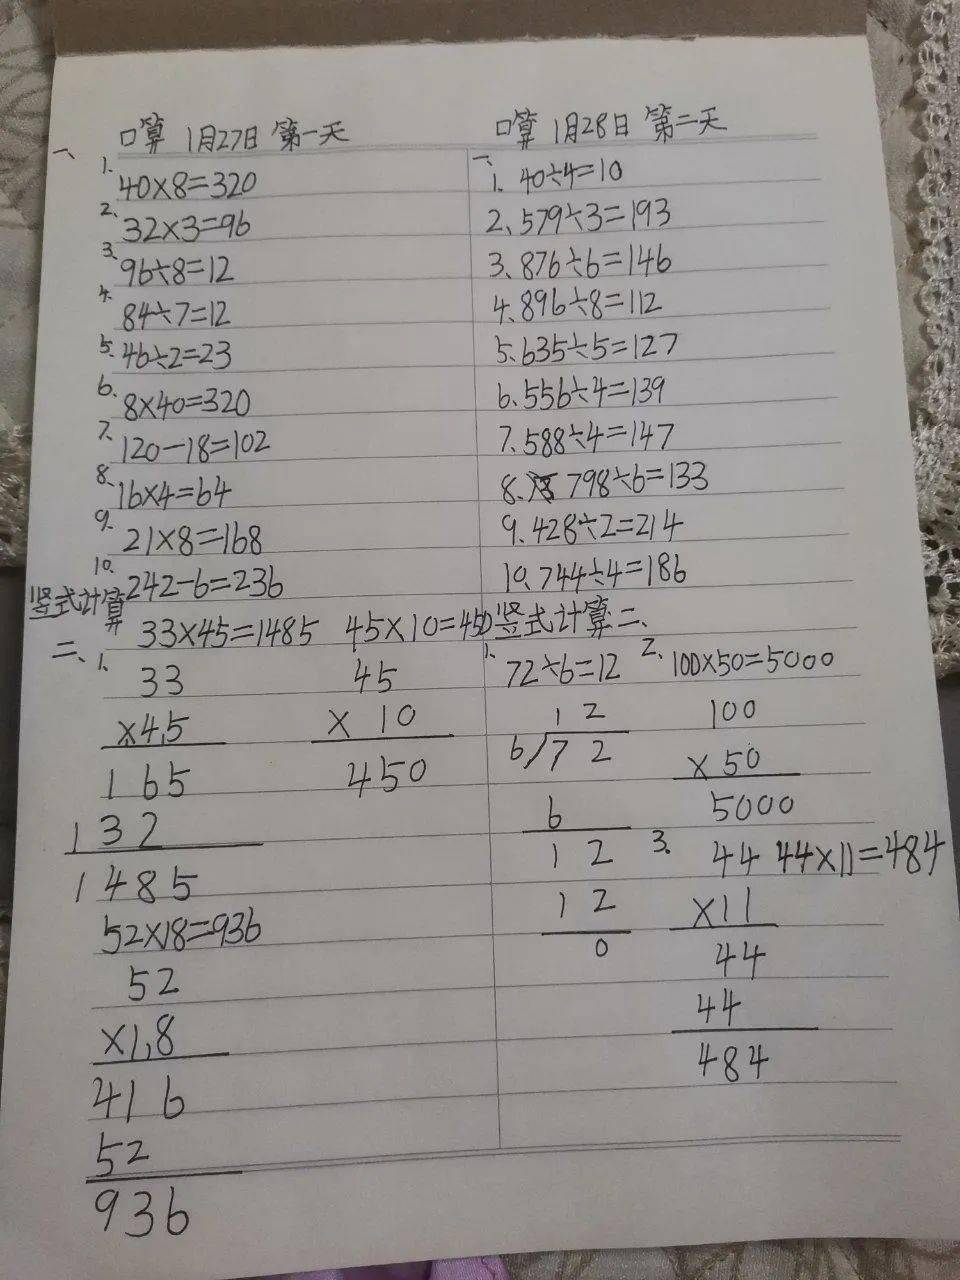 口算 1月27日 第一天
一、
1、40×8=320
2、32×3=96
3、96÷8=12
4、84÷7=12
5、46÷2=23
6、8×40=320
7、120-18=102
8、16×4=64
9、21×8=168
10、242-6=236
竖式计算
二、1、33×45=1485 45×10=450
33
×45
165
132
1485
45
× 10
450
52×18=936
52
×18
416
52
936
口算 1月28日 第二天
一、
1、40÷4=10
2、579÷3=193
3、876÷6=146
4、896÷8=112
5、635÷5=127
6、556÷4=139
7、588÷4=147
8、798÷6=133
9、428÷2=214
10、744÷4=186
竖式计算二、
1、72÷6=12
12
6/72
6
12
12
0
2、100×50=5000
100
×50
5000
3、44 44×11=484
×11
44
44
484